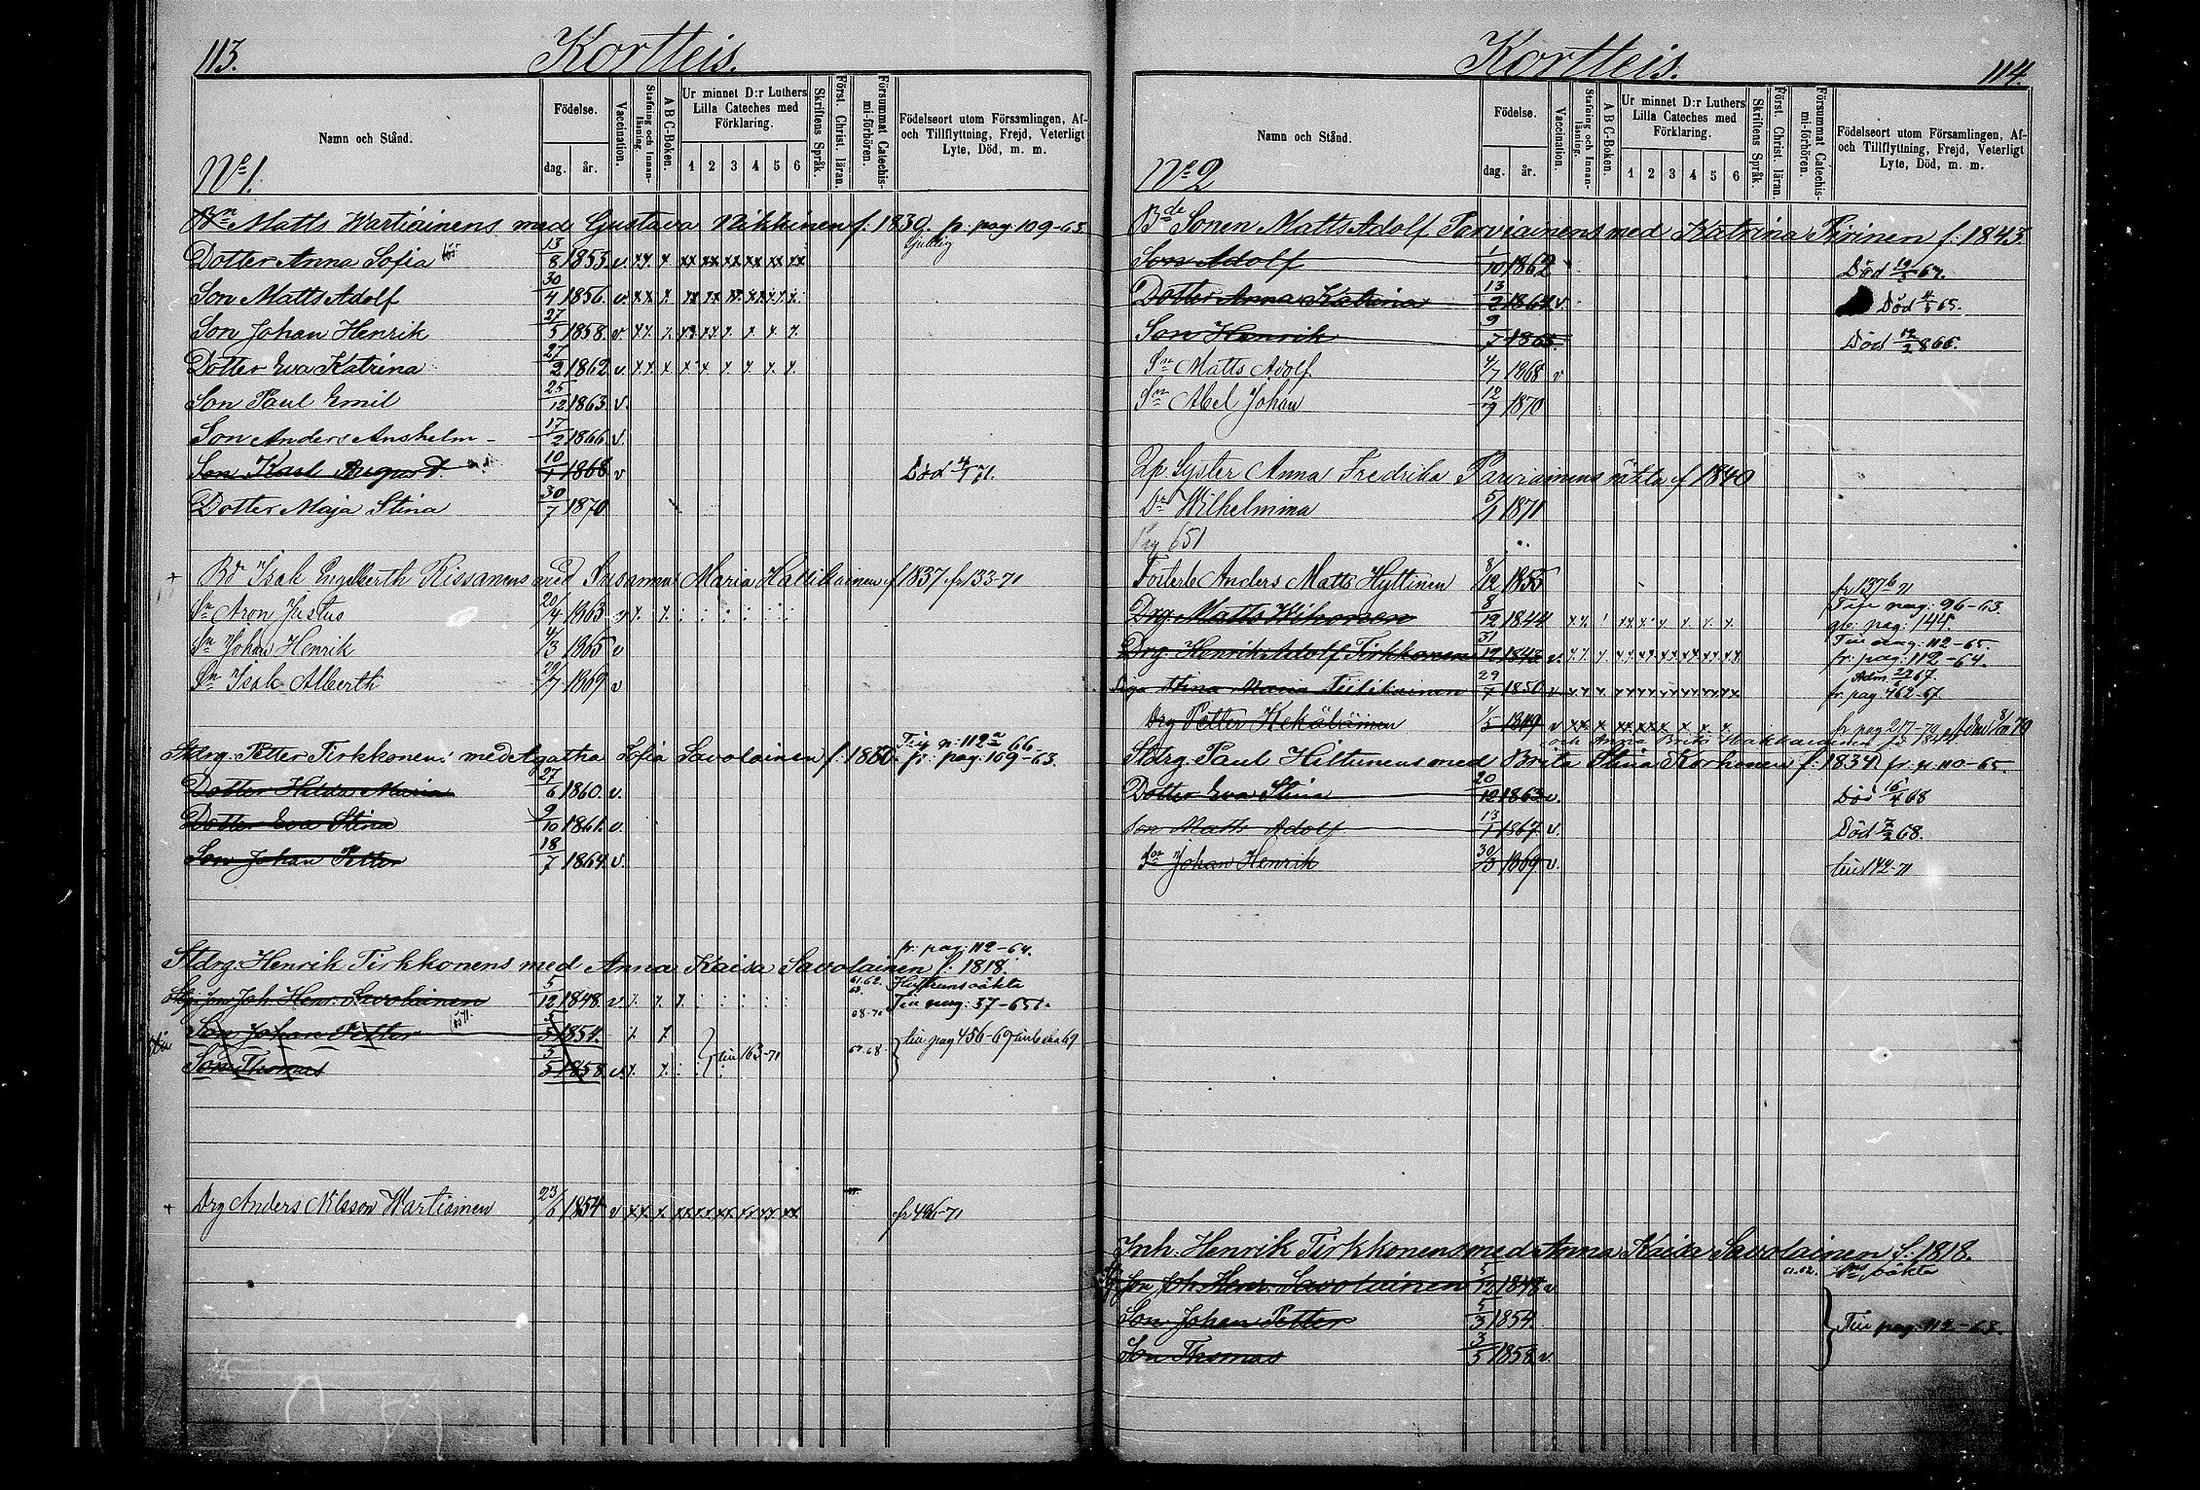 113. Kortteis.
Namn och Stånd.
Födelse.
dag. år.
Vaccination.
Stafning och Innanläsning
A B C-Boken.
Ur minnet D:r Luthers Lilla Cateches med Förklaring.
1 2 3 4 5 6
Skriftens Språk.
Först. Christ. läran.
Försummat Catechismi-förhören.
Födelseort utom Församlingen, Af- och Tillflyttning, Frejd, Veterligt Lyte, Död, m. m.
No 1.
Bn Matts Wartiainens med Gustava Nikkinen f. 1830. fr. pag 109-63
Dotter Anna Sofia 13/8 1853 v.
Son Matts Adolf 30/4 1856. v.
Son Johan Henrik 27/5 1858 v
Dotter Eva Katrina 27/2 1862 v.
Son Paul Emil 25/12 1863 v.
Son Anders Anshelm 17/2 1866. v.
Son Karl August 10/1 1868 v Död 71.
Dotter Maja Stina 30/7 1870
Bd Isak Engelberth Rissanens med Susanna Maria Hallikainen f 1837 fr 133-71
Sn Aron Justus 20/4 1863
Sn Johan Henrik 4/3 1865 v
Sn Isak Alberth 29/7 1869 v
Tie p: 112 a 66
Stdrg. Petter Tirkkonens med Agatha Sofia Savolainen f: fr: pag: 109-63.
Dotter Hilda Maria 27/6 1860. v.
Dotter Eva Stina 9/10 1861. v.
Son Johan Petter 18/7 1864 v.
fr: pag: 112-64.
Stdrg: Henrik Tirkkonens med Anna Kaisa Savolainen f. 1818.
Joh. Henr. Savolainen 5/12 1848. v. 61.62. Tie pag: 37-65
Son Johan Petter 5/3 tie pag 456-69
Son Thomas 3/5 1858. v. tie 163-71 67.68
Drg Anders Nilsson Wartiainen 23/6 1854 v fr 496-71
Kortteis. 114.
Namn och Stånd.
Födelse.
dag. år.
Vaccination.
Stafning och Innanläsning.
A B C-Boken.
Ur minnet D:r Luthers Lilla Cateches med Förklaring.
1 2 3 4 5 6
Skriftens Språk.
Först. Christ. läran.
Försummat Catechismi-förhören.
Födelseort utom Församlingen, Af- och Tillflyttning, Frejd, Veterligt Lyte, Död, m. m.
No 2
Bde Sonen Matts Adolf Parviainens med Katrina Piirinen f. 1843.
Son Adolf 1/10 1862 Död 67.
Dotter Anna Katrina 13/2 1864 v. Död 65.
Son Henrik 9/7 1865 Död 12/2 866.
Sn Matts Adolf 4/7 1868 v
Sn Abel Johan 12/9 1870
Syster Anna Fredrika Parviainens oäkta f 1840
Dr Wilhelmina 5/1 1871
Pag 651
Anders Matts Hyttinen 8/12 1855 fr 137 b 71
Tie pag: 96-63.
Drg. Matts Kikonen 8/12 1844 pag: 144.
Tie pag: 112-65.
Drg. Henrik Adolf Tirkkonen 31/12 1843 v. fr: pag: 112-64.
Piga Stina Maria Tiilikainen 29/7 1850 v fr. pag 462-67
Drg Petter Kekäläinen 1/5 1849 v fr pag 217-70
Stdrg. Paul Hiltunens med Brita Stina Korhonen f: 1834 fr. p: 110-65.
Dotter Eva Stina 20/12 1863 v. Död 16/4 68
Son Matts Adolf 13/1 1867 v. Död 7/2 68.
Son Johan Henrik 30/3 1869 v. tie 142-71
Inh: Henrik Tirkkonens med Anna Kaisa Savolainen f. 1818.
Son Joh. Henr. Savolainen 5/12 1848 v. 61.62. oäkta
Son Johan Petter 5/3 1854
Tie pag 112-63.
Son Thomas 3/5 1858 v.